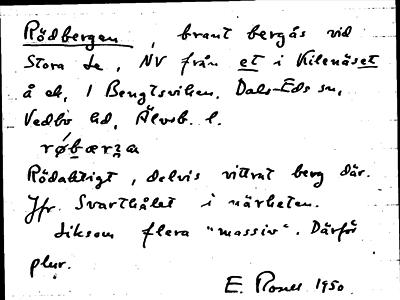 Rödbergen, brant bergås vid
Stora Le, NV från et i Kilenäset
å ek, 1 Bengtsviken. Dals-Eds sn,
Vedbo hd, Älvsb. l.
Rödaktigt, delvis vittrat berg där.
Jfr Svarthålet i närheten.
liksom flera "massiv". Därför
plur.
E. 1950.